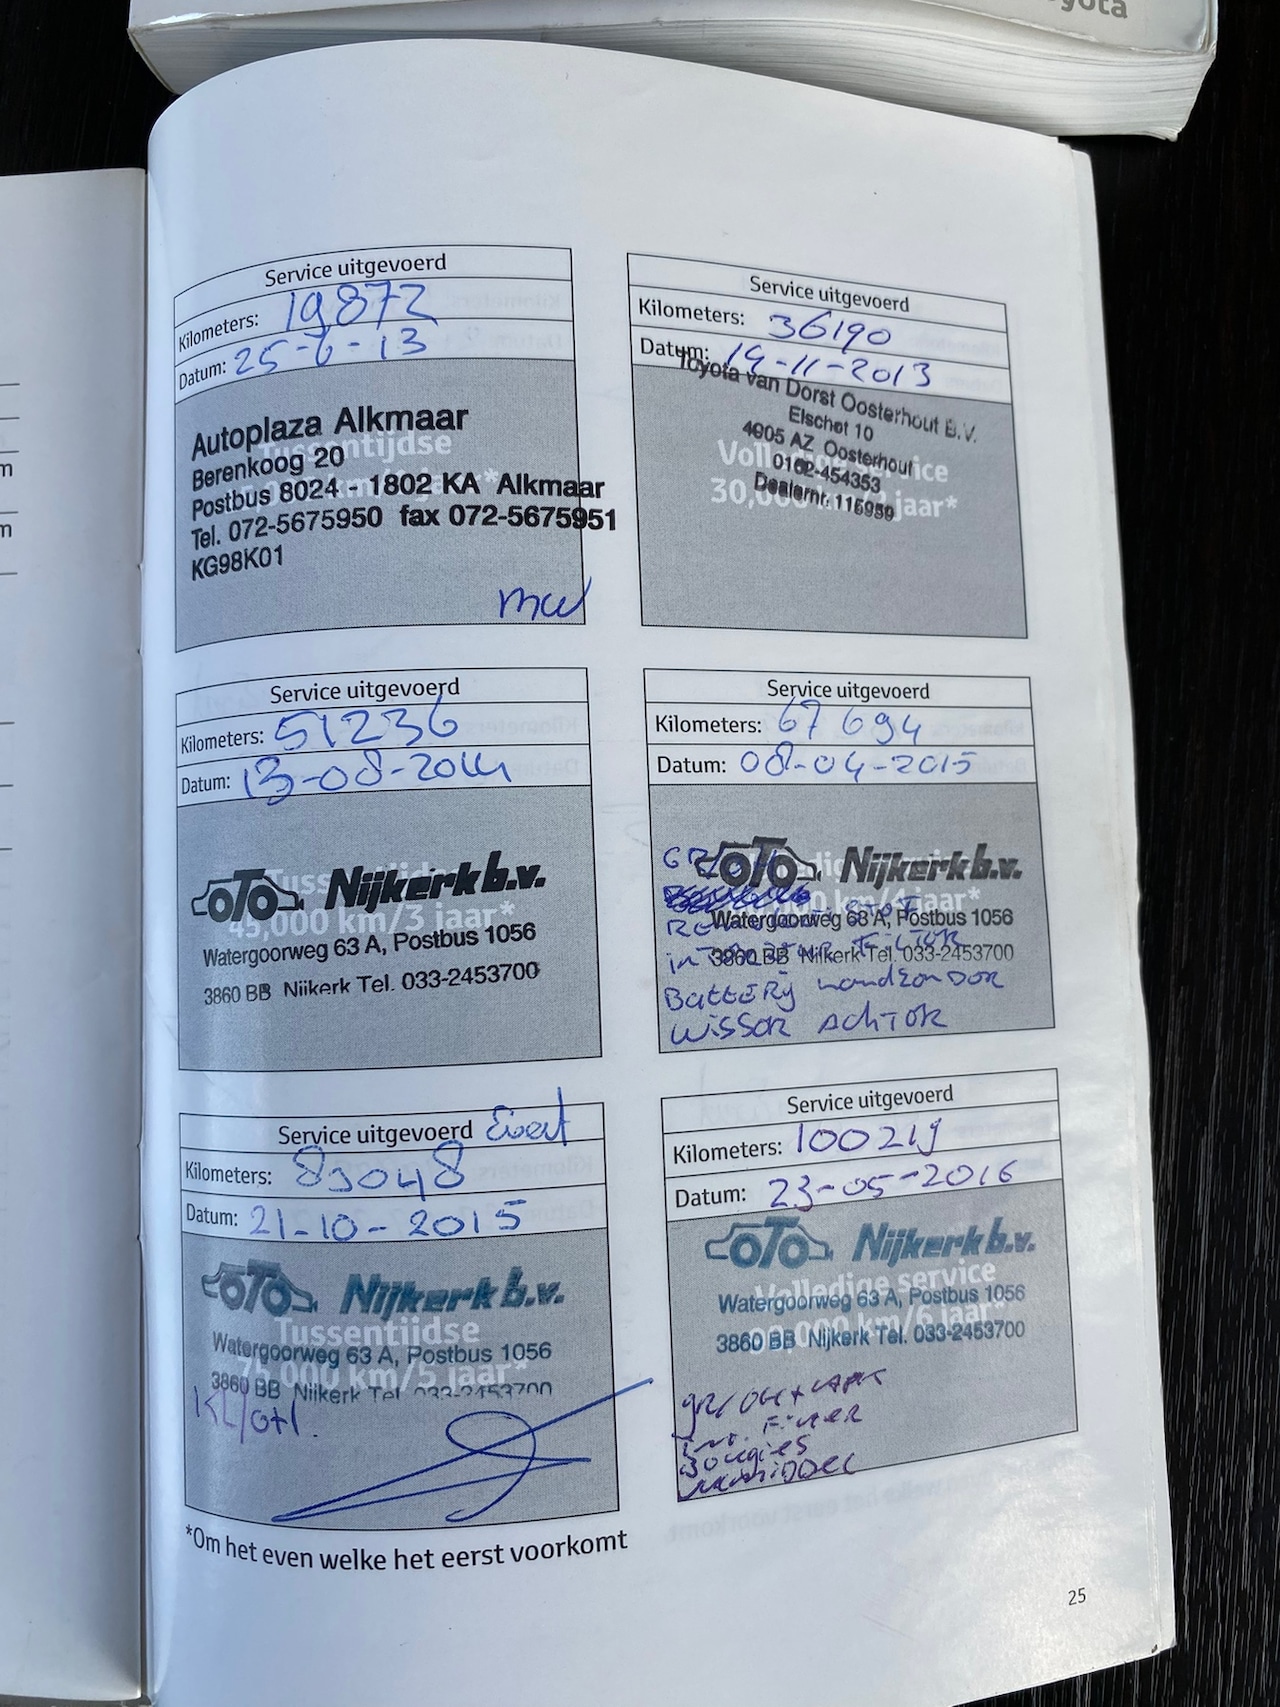 Service uitgevoerd
Kilometers: 19872
Datum: 25-6-13
Autoplaza Alkmaar
Tussentijdse
Berenkoog 20
Postbus 8024 - 1802 KA Alkmaar
Tel. 072-5675950 fax 072-5675951
KG98K01
Service uitgevoerd
Kilometers: 36190
Datum: 19-11-2013
Toyota van Dorst Oosterhout B.V.
Elschot 10
4905 AZ Oosterhout
0162-454353
Dealernr. 115959
Volledige service
30,000 km/2 jaar*
Service uitgevoerd
Kilometers: 51236
Datum: 13-08-2014
OTO Nijkerk b.v.
Tussentijdse
45,000 km/3 jaar*
Watergoorweg 63 A, Postbus 1056
3860 BB Nijkerk Tel. 033-2453700
Service uitgevoerd
Kilometers: 67694
Datum: 08-04-2015
OTO Nijkerk b.v.
Watergoorweg 63 A, Postbus 1056
3860 BB Nijkerk Tel. 033-2453700
Battery
wissor Achtor
Service uitgevoerd Evert
Kilometers: 83048
Datum: 21-10-2015
OTO Nijkerk b.v.
Tussentijdse
75,000 km/5 jaar*
Watergoorweg 63 A, Postbus 1056
3860 BB Nijkerk Tel. 033-2453700
Service uitgevoerd
Kilometers: 100219
Datum: 23-05-2016
OTO Nijkerk b.v.
Volledige service
90,000 km/6 jaar*
Watergoorweg 63 A, Postbus 1056
3860 BB Nijkerk Tel. 033-2453700
Bougies
*Om het even welke het eerst voorkomt
25